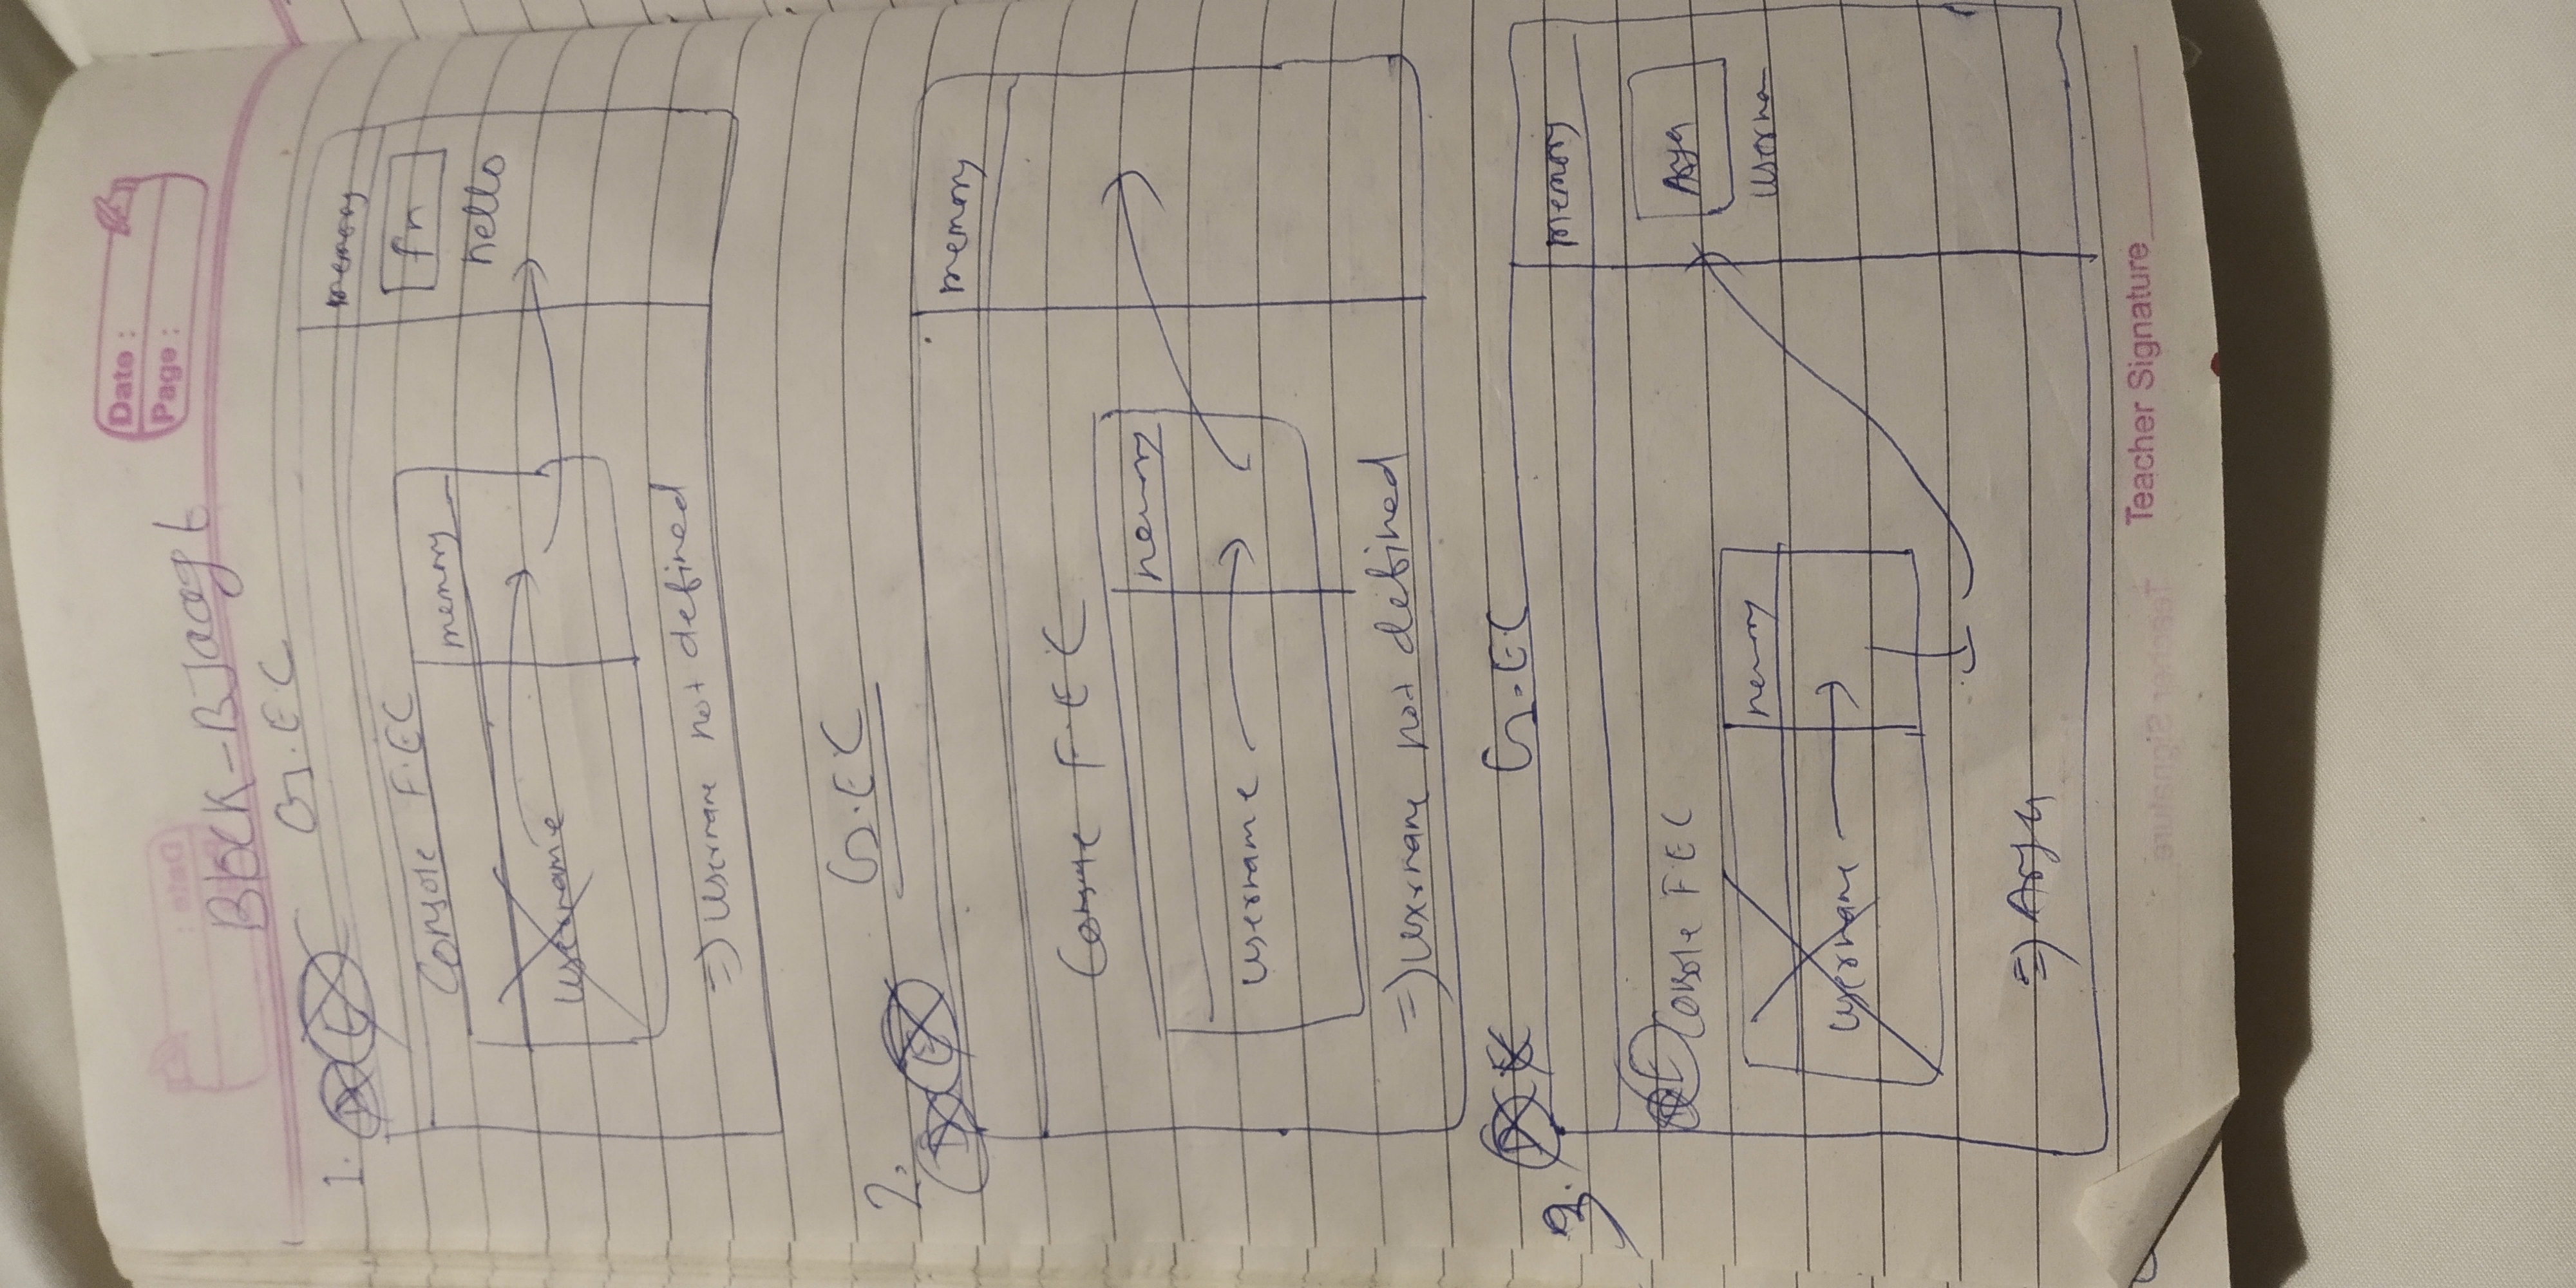 Date :
Page :
1.
G.EC
memory
fn
hello
Console F.EC
memory
username
=) username not defined
2.
G.EC
memory
Console F.E.C
memory
username
=) username not defined
3.
G.EC
memory
Arya
userna
Console F.EC
memory
username
=) Arya
Teacher Signature